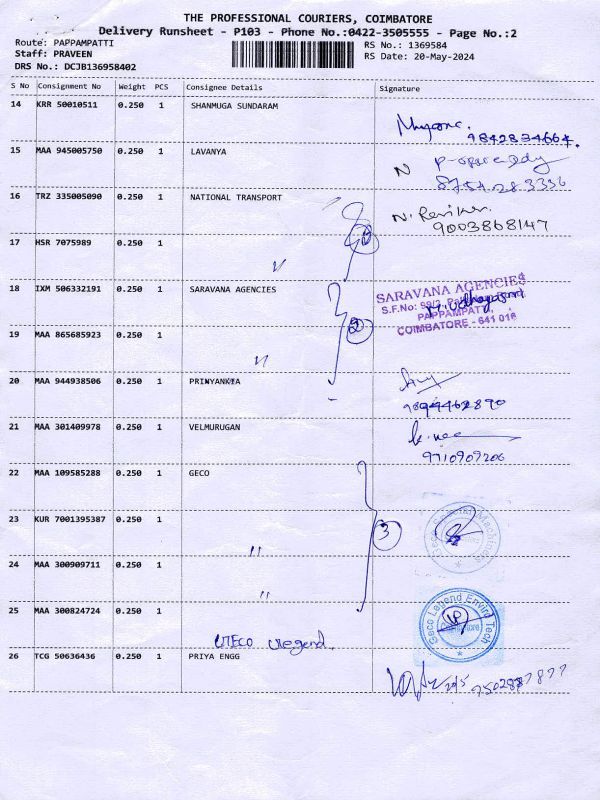 THE PROFESSIONAL COURIERS, COIMBATORE
Delivery Runsheet - P103 - Phone No.:0422-3505555 - Page No.:2
Route: PAPPAMPATTI
Staff: PRAVEEN
DRS No.: DCJB136958402
RS No.: 1369584
RS Date: 20-May-2024
S No Consignment No Weight PCS Consignee Details Signature
14 KRR 50010511 0.250 1 SHANMUGA SUNDARAM
9842834664.
15 MAA 945005750 0.250 1 LAVANYA
8754283336
16 TRZ 335005090 0.250 1 NATIONAL TRANSPORT
9003868147
2
17 HSR 7075989 0.250 1 〃
18 IXM 506332191 0.250 1 SARAVANA AGENCIES
SARAVANA AGENCIES
S.F.No: 99/2,
PAPPAMPATTI,
COIMBATORE - 641 016
2
19 MAA 865685923 0.250 1 〃
20 MAA 944938506 0.250 1 PRINYANKIA
21 MAA 301409978 0.250 1 VELMURUGAN
9710909206
22 MAA 109585288 0.250 1 GECO
23 KUR 7001395387 0.250 1 〃
3
24 MAA 300909711 0.250 1 〃
25 MAA 300824724 0.250 1
GECO Legend.
Geco Legend Enviro Tech
26 TCG 50636436 0.250 1 PRIYA ENGG